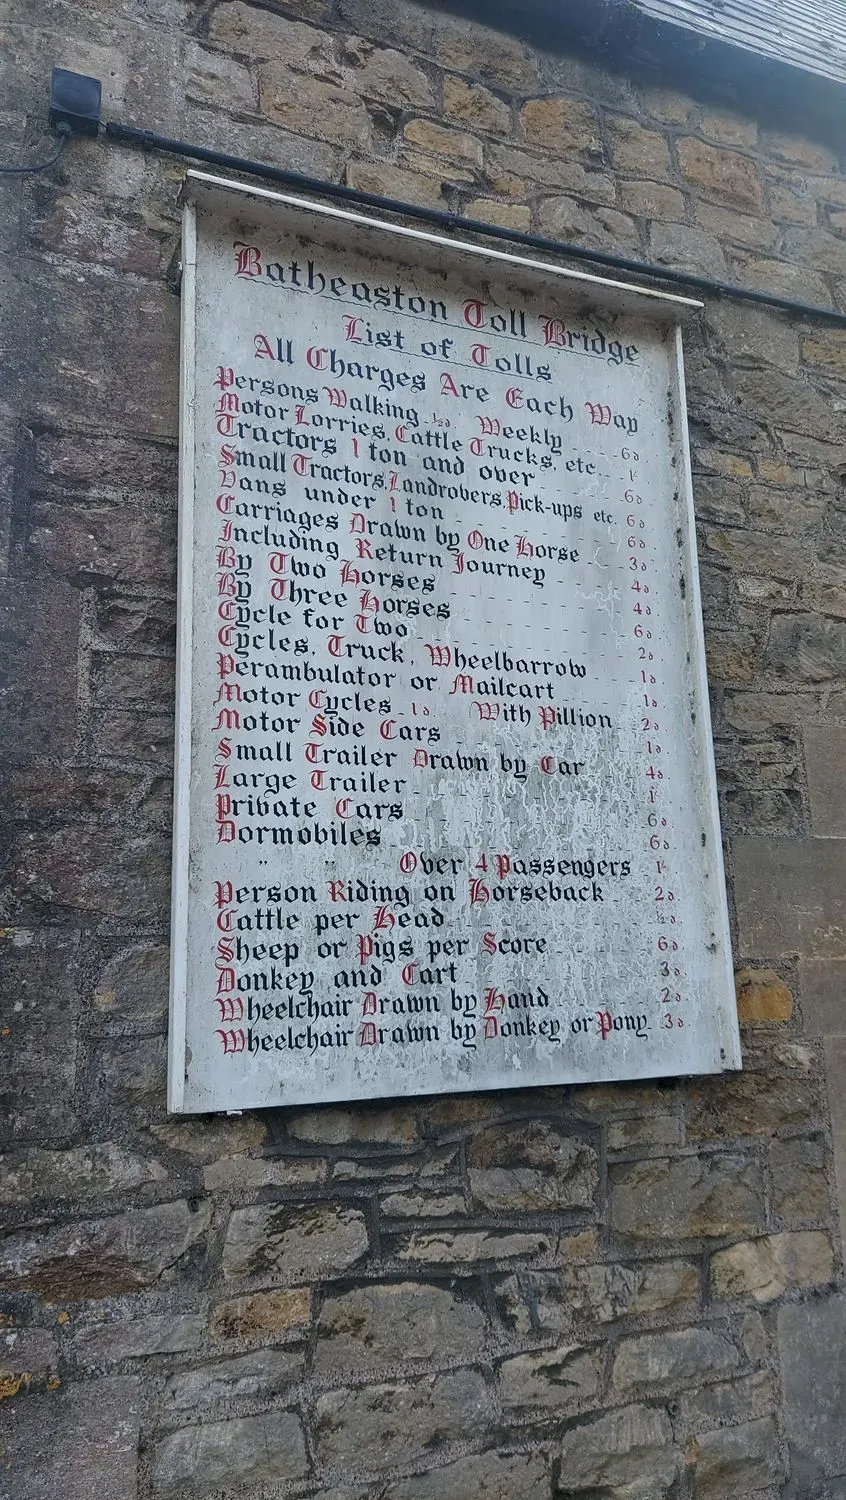 Batheaston Toll Bridge
List of Tolls
All Charges Are Each Way
Persons Walking ½d. Weekly 6d
Motor Lorries, Cattle Trucks, etc. 1/-
Tractors 1 ton and over 6d.
Small Tractors, Landrovers, Pick-ups etc. 6d.
Vans under 1 ton 6d.
Carriages Drawn by One Horse 3d.
Including Return Journey 4d.
By Two Horses 4d.
By Three Horses 6d.
Cycle for Two 2d.
Cycles, Truck, Wheelbarrow 1d.
Perambulator or Mailcart 1d.
Motor Cycles 1d. With Pillion 2d.
Motor Side Cars 1d.
Small Trailer Drawn by Car 4d.
Large Trailer 1/-
Private Cars 6d.
Dormobiles 6d.
" " Over 4 Passengers 1/-
Person Riding on Horseback 2d.
Cattle per Head ½d.
Sheep or Pigs per Score 6d.
Donkey and Cart 3d.
Wheelchair Drawn by Hand 2d.
Wheelchair Drawn by Donkey or Pony 3d.